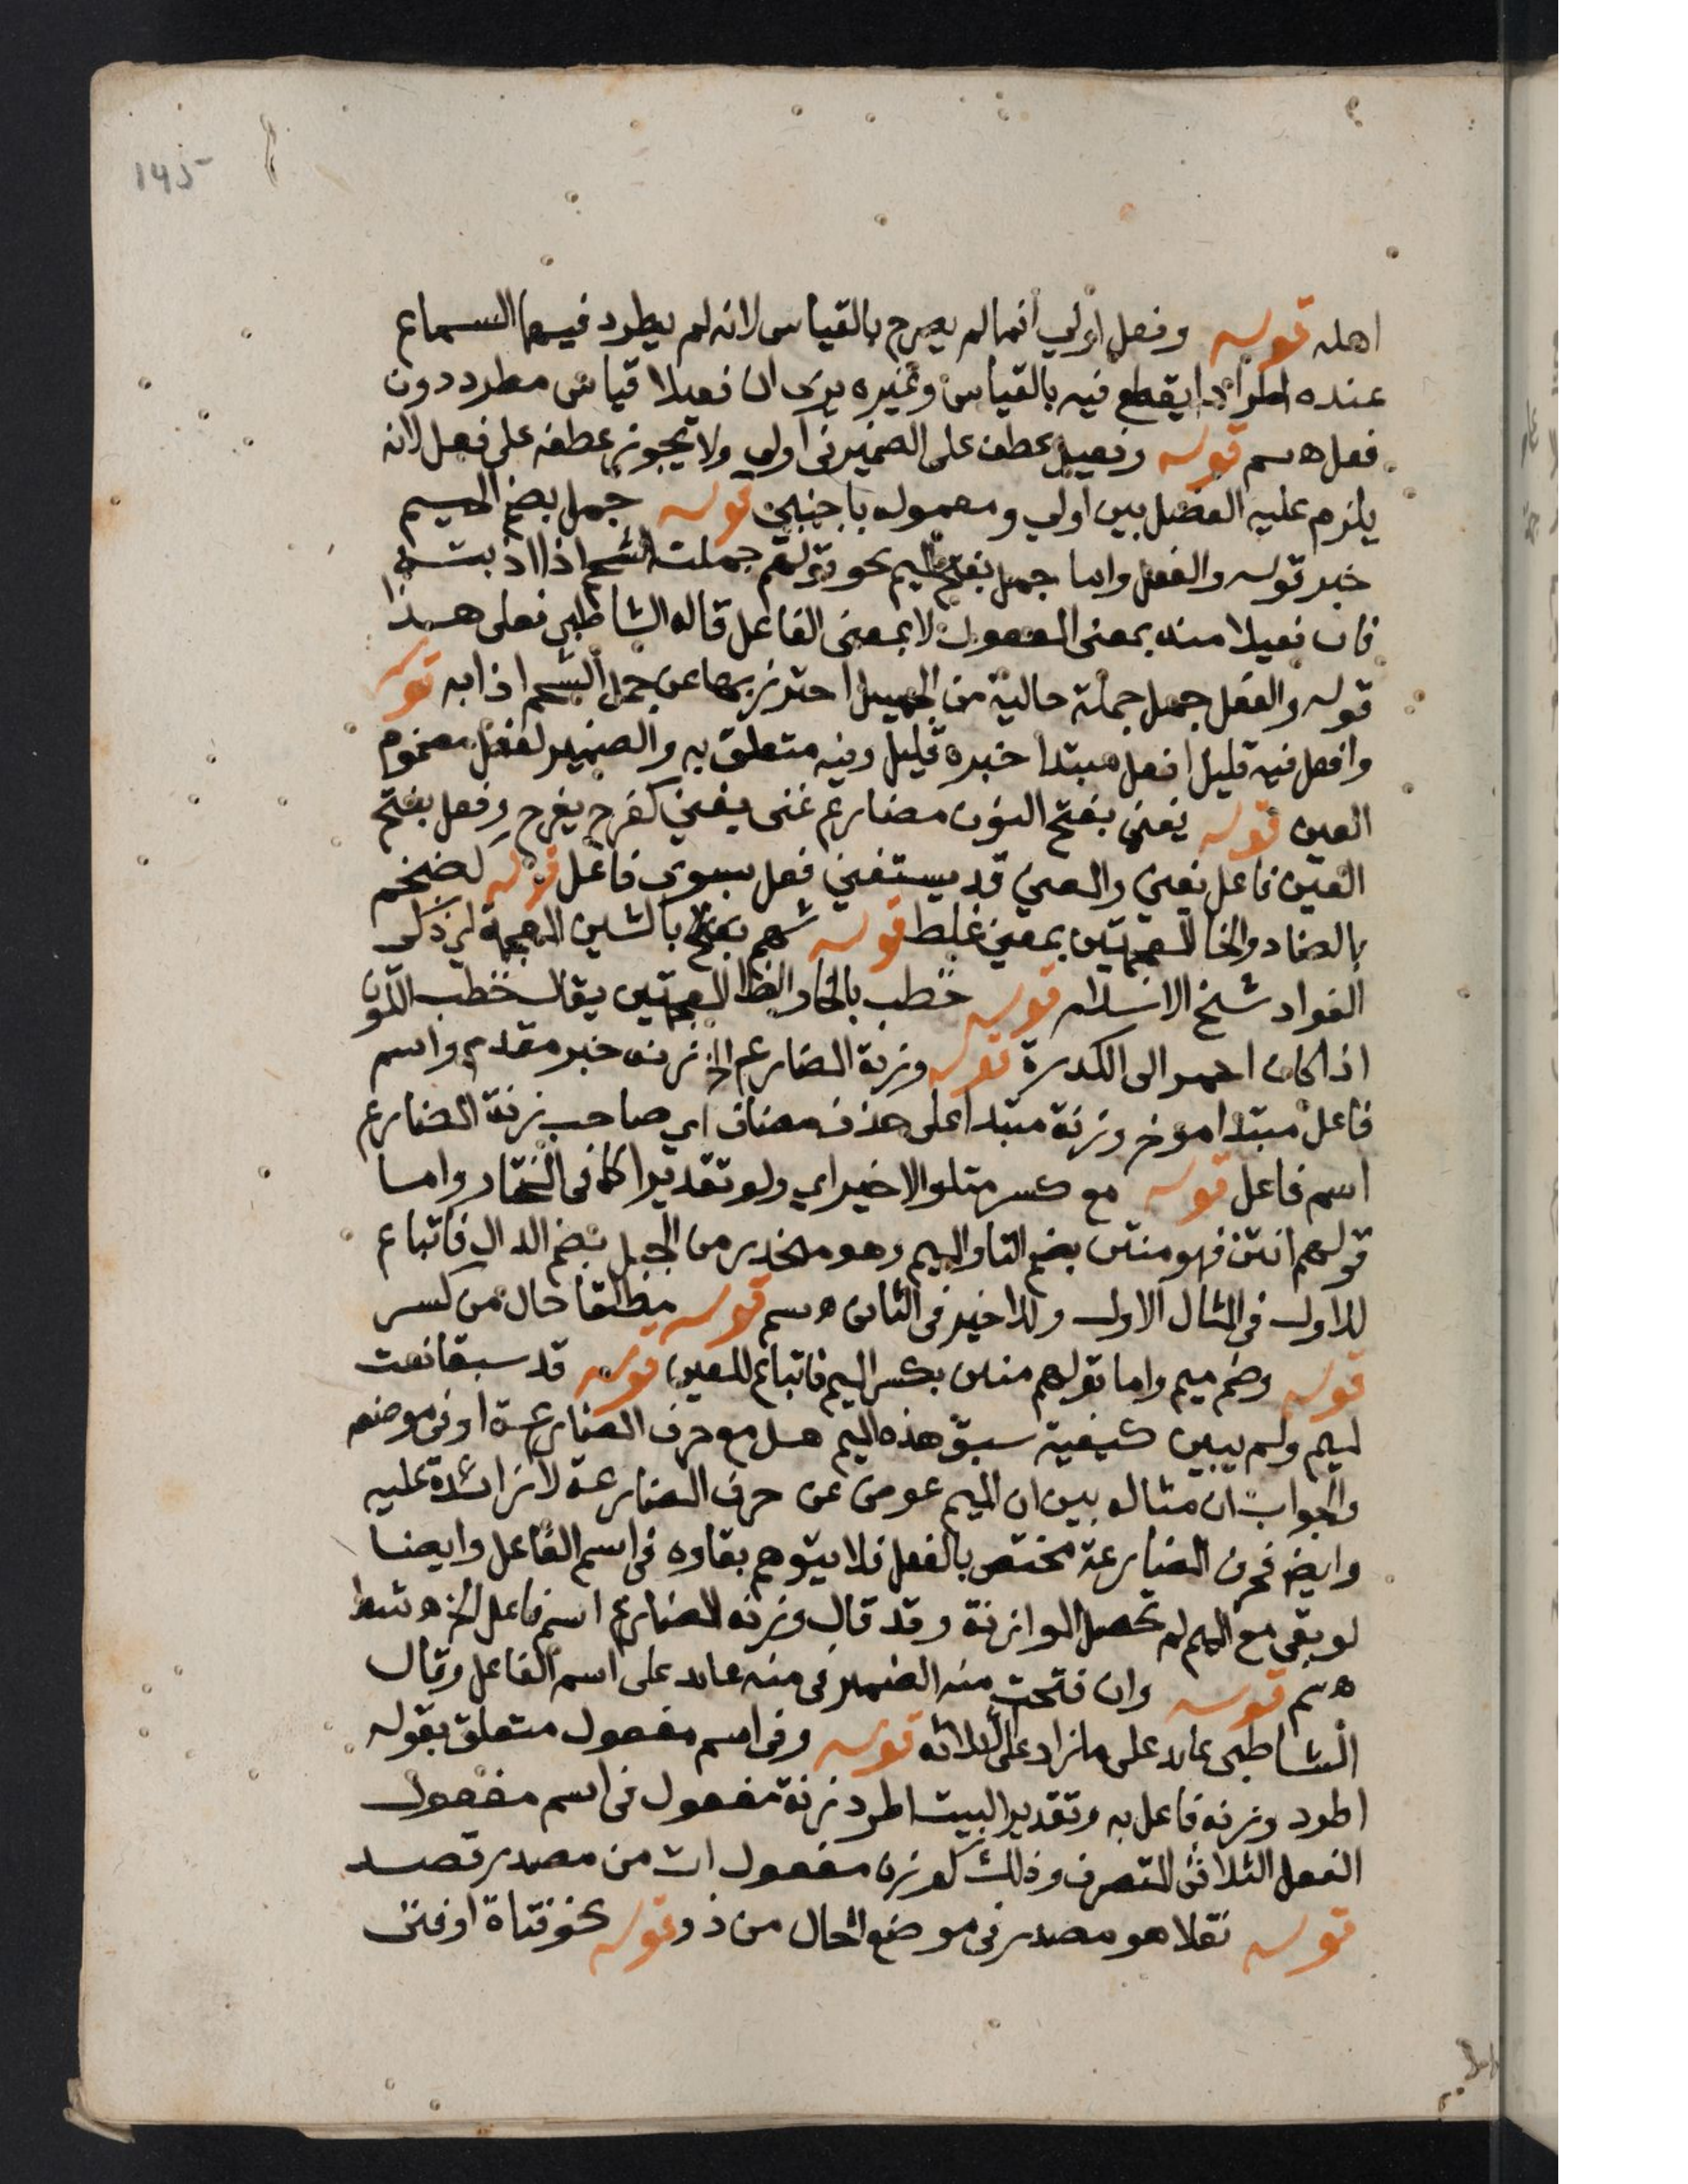 145
اهله قوله وفعل اولي انما لم يصرح بالقياس لانه لم يطرد فيهما السماع
عنده اطرادا يقطع فيه بالقياس وغيره يرى ان فعيلا قياس مطرد دون
فعل ه سم قوله وفعيل عطف على الضمير فى اولى ولا يجوز عطفه على فعل لانه
يلزم عليه الفصل بين اولي ومعموله باجنبي قوله جمل بضم الميم
خبر قوله والفعل واما جمل بفتح الميم نحو قولهم جملت الشحم اذا اذبته
فان فعيلا منه بمعنى المفعول لا بمعنى الفاعل قاله الشاطبي فعلى هذا
قوله والفعل جمل جملة حالية من الجميل احترز بها عن جمل الشحم اذابه قوله
وافعل فيه قليل افعل مبتدا خبره قليل وفيه متعلق به والضمير لفعل مضموم
العين قوله يغنى بفتح النون مضارع غنى يغني كفرح يفرح وفعل بفتح
العين فاعل يغني والمعنى قد يستغني فعل بسوى فاعل قوله لضخم
بالضاد والخا المعجمتين بمعنى غلظ قوله شهم بفتح بالشين المعجمة اي ذكي
الفواد شيخ الاسلام قوله خظب بالخا والظا المعجمتين يقال خظب اللون
اذا كان احمر الى الكدرة قوله وزنة المضارع الخ زنة خبر مقدم واسم
فاعل مبتدا موخر وزنة مبتدا على حذف مضاف اي صاحب زنة المضارع
اسم فاعل قوله مع كسر متلو الاخير اي ولو تقديرا كما فى المختار واما
قولهم انتن فهو منتن بضم التا والميم وهو منحدر من الجبل بضم الدال فاتباع
للاول فى المثال الاول وللاخير فى الثانى ه سم قوله مطلقا حال من كسر
قوله وضم ميم واما قولهم منتن بكسر الميم فاتباع للعين قوله قد سبقا نعت
لميم ولم يبين كيفية سبق هذه الميم هل مع حرف المضارعة او فى موضعه
والجواب ان مثاله بين ان الميم عوض عن حرف المضارعة لا زائدة عليه
وايضا فحرف المضارعة مختص بالفعل فلا يتوهم بقاوه فى اسم الفاعل وايضا
لو بقى مع الميم لم تحصل الموازنة وقد قال وزنة المضارع اسم فاعل الخ ه شط
ه سم قوله وان فتحت منه الضمير فى منه عايد على اسم الفاعل وقال
الشاطبى عايد على ما زاد على الثلاثة قوله وفى اسم مفعول متعلق بقوله
اطرد وزنة فاعل به وتقدير البيت اطرد زنة مفعول فى اسم مفعول
الفعل الثلاثى المتصرف وذلك كوزن مفعول ات من مصدر قصد
قوله نقلا هو مصدر فى موضع الحال من ذو قوله نحو فتاة او فتى